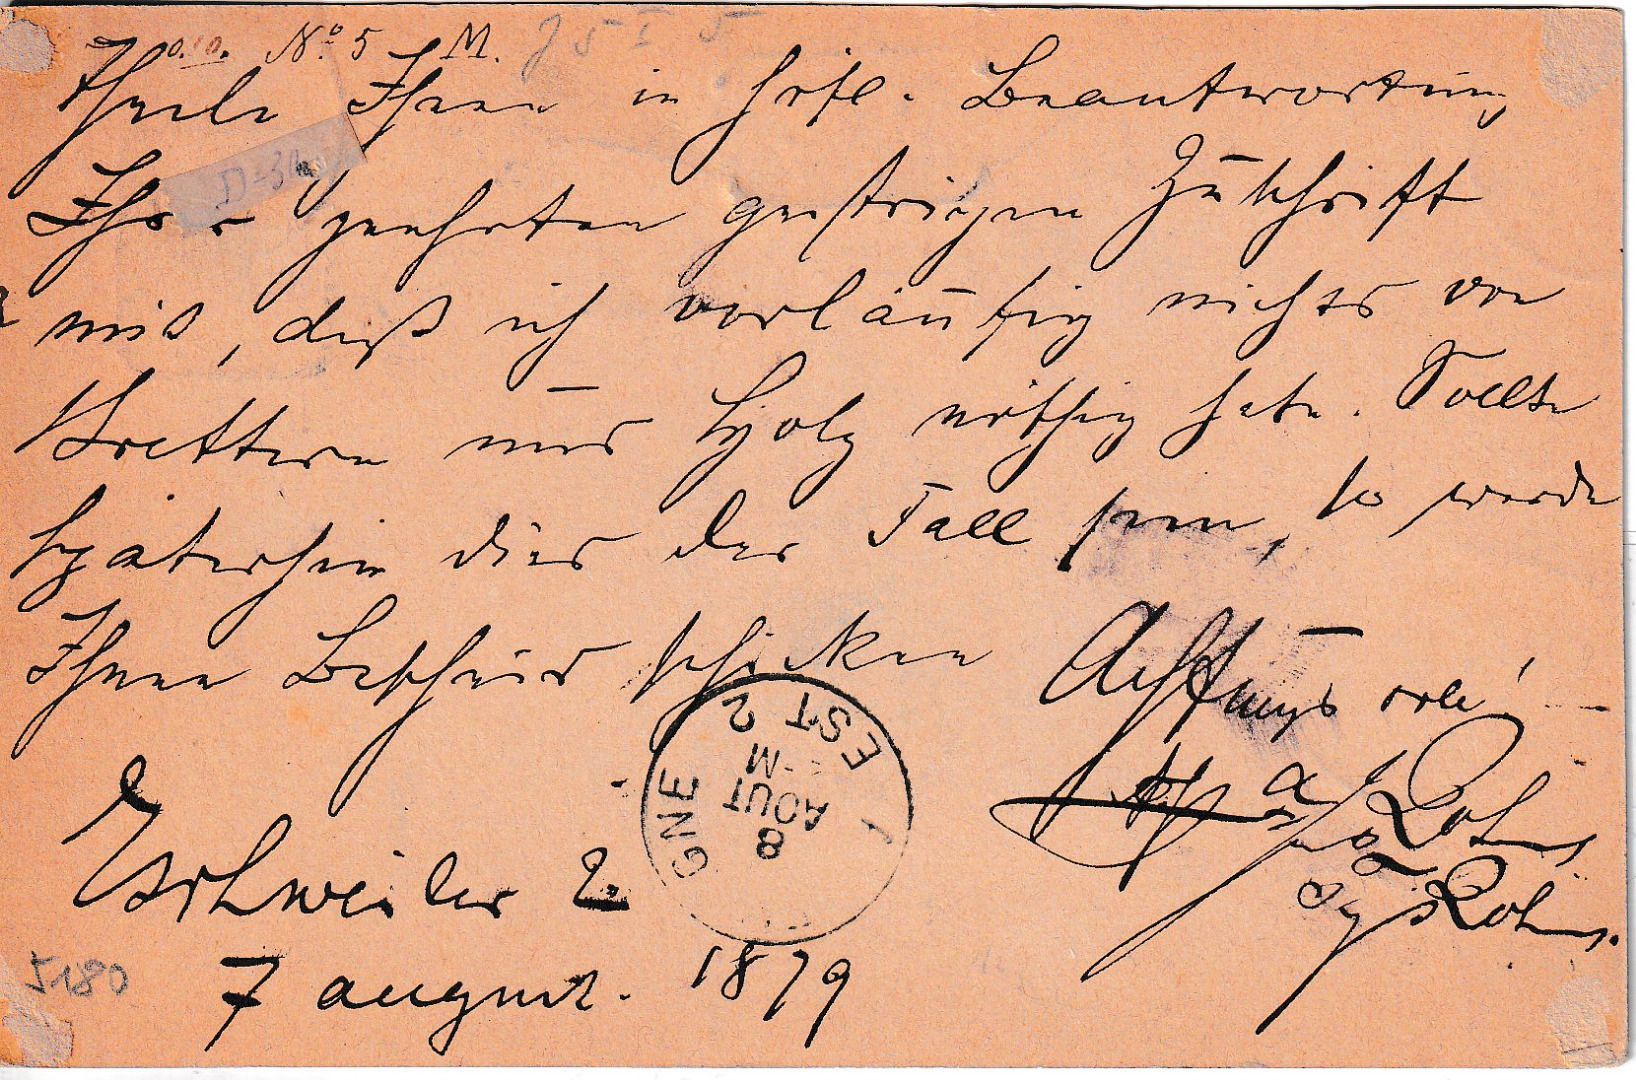 No. 5 M.
Theile Ihnen in höfl. Beantwortung
Ihrer geehrten gestrigen Zuschrift
mit, daß ich vorläufig nichts von
Brettern und Holz nöthig habe. Sollte
späterhin dies der Fall sein, so werde
Ihnen Bescheid schicken
Achtungsvoll
Eschweiler
7 august. 1879
EST 2
8
AOUT
GNE
5180